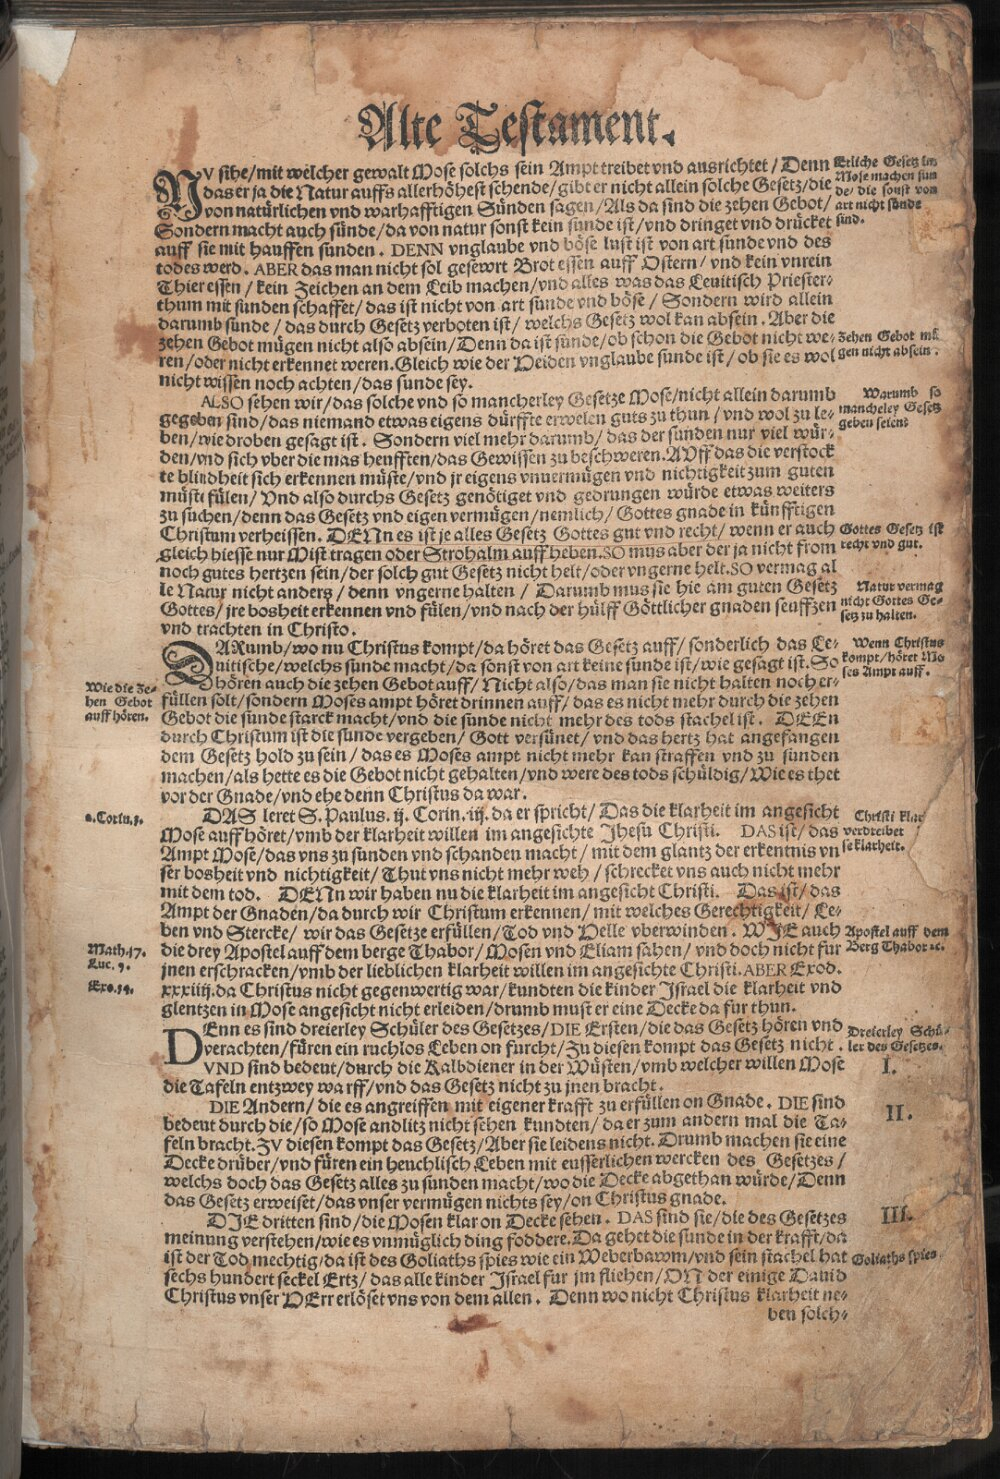 Alte Testament.
NV sihe/mit welcher gewalt Mose solchs sein Ampt treibet vnd ausrichtet/Denn
das er ja die Natur auffs allerhöhest schende/gibt er nicht allein solche Gesetz/die
von natürlichen vnd warhafftigen Sünden sagen/Als da sind die zehen Gebot/
Sondern macht auch sünde/da von natur sonst kein sunde ist/vnd dringet vnd drücket
auff sie mit hauffen sunden. DENN vnglaube vnd böse lust ist von art sunde vnd des
todes werd. ABER das man nicht sol geseurt Brot essen auff Ostern/vnd kein vnrein
Thier essen/kein Zeichen an dem Leib machen/vnd alles was das Leuitisch Priester-
thum mit sunden schaffet/das ist nicht von art sunde vnd böse/Sondern wird allein
darumb sunde/das durch Gesetz verboten ist/welchs Gesetz wol kan absein. Aber die
zehen Gebot mügen nicht also absein/Denn da ist sunde/ob schon die Gebot nicht we-
ren/oder nicht erkennet weren. Gleich wie der Heiden vnglaube sunde ist/ob sie es wol
nicht wissen noch achten/das sunde sey.
Etliche Gesetz im
Mose machen sun
de/die sonst von
art nicht sünde
sind.
Zehen Gebot mü
gen nicht absein.
ALSO sehen wir/das solche vnd so mancherley Gesetze Mose/nicht allein darumb
gegeben sind/das niemand etwas eigens dürffte erwelen guts zu thun/vnd wol zu le-
ben/wie droben gesagt ist. Sondern viel mehr darumb/das der sunden nur viel wür-
den/vnd sich vber die mas heufften/das Gewissen zu beschweren. AVff das die verstock
te blindheit sich erkennen müste/vnd jr eigens vnuermügen vnd nichtigkeit zum guten
müste fülen/Vnd also durchs Gesetz genötiget vnd gedrungen würde etwas weiters
zu suchen/denn das Gesetz vnd eigen vermügen/nemlich/Gottes gnade in künfftigen
Christum verheissen. DENn es ist je alles Gesetz Gottes gut vnd recht/wenn er auch
gleich hiesse nur Mist tragen oder Strohalm auffheben. SO mus aber der ja nicht from
noch gutes hertzen sein/der solch gut Gesetz nicht helt/oder vngerne helt. SO vermag al
le Natur nicht anders/denn vngerne halten/Darumb mus sie hie am guten Gesetz
Gottes/jre bosheit erkennen vnd fülen/vnd nach der hülff Göttlicher gnaden seuffzen
vnd trachten in Christo.
Warumb so
mancheley Gesetz
geben seien
Gottes Gesetz ist
recht vnd gut.
Natur vermag
nicht Gottes Ge-
setz zu halten.
DARumb/wo nu Christus kompt/da höret das Gesetz auff/sonderlich das Le-
uitische/welchs sunde macht/da sonst von art keine sunde ist/wie gesagt ist. So
hören auch die zehen Gebot auff/Nicht also/das man sie nicht halten noch er-
füllen solt/sondern Moses ampt höret drinnen auff/das es nicht mehr durch die zehen
Gebot die sunde starck macht/vnd die sunde nicht mehr des tods stachel ist. DEEn
durch Christum ist die sunde vergeben/Gott versünet/vnd das hertz hat angefangen
dem Gesetz hold zu sein/das es Moses ampt nicht mehr kan straffen vnd zu sunden
machen/als hette es die Gebot nicht gehalten/vnd were des tods schüldig/Wie es thet
vor der Gnade/vnd ehe denn Christus da war.
Wenn Christus
kompt/höret Mo-
ses Ampt auff.
Wie die Ze-
hen Gebot
auff hören.
DAS leret S. Paulus. ij. Corin. iij. da er spricht/Das die klarheit im angesicht
Mose auffhöret/vmb der klarheit willen im angesichte Jhesu Christi. DAS ist/das
Ampt Mose/das vns zu sunden vnd schanden macht/mit dem glantz der erkentnis vn
ser bosheit vnd nichtigkeit/Thut vns nicht mehr weh/schrecket vns auch nicht mehr
mit dem tod. DENn wir haben nu die klarheit im angesicht Christi. Das ist/das
Ampt der Gnaden/da durch wir Christum erkennen/mit welches Gerechtigkeit/Le-
ben vnd Stercke/wir das Gesetze erfüllen/Tod vnd Helle vberwinden. WJE auch
die drey Apostel auff dem berge Thabor/Mosen vnd Eliam sahen/vnd doch nicht fur
jnen erschracken/vmb der lieblichen klarheit willen im angesichte Christi. ABER Exod.
xxxiiij. da Christus nicht gegenwertig war/kundten die kinder Jsrael die klarheit vnd
glentzen in Mose angesicht nicht erleiden/drumb must er eine Decke da fur thun.
2. Corin. 3.
Christi klar
verdreibet
se klarheit.
Apostel auff dem
Berg Thabor ꝛc.
Math. 17.
Luc. 9.
Exo. 34.
DEnn es sind dreierley Schüler des Gesetzes/DIE Ersten/die das Gesetz hören vnd
verachten/füren ein ruchlos Leben on furcht/Zu diesen kompt das Gesetz nicht.
VND sind bedeut/durch die Kalbdiener in der Wüsten/vmb welcher willen Mose
die Tafeln entzwey warff/vnd das Gesetz nicht zu jnen bracht.
Dreierley Schü-
ler des Gesetzes.
I.
DIE Andern/die es angreiffen mit eigener krafft zu erfüllen on Gnade. DIE sind
bedeut durch die/so Mose andlitz nicht sehen kundten/da er zum andern mal die Ta-
feln bracht. ZV diesen kompt das Gesetz/Aber sie leidens nicht. Drumb machen sie eine
Decke drüber/vnd füren ein heuchlisch Leben mit eusserlichen wercken des Gesetzes/
welchs doch das Gesetz alles zu sunden macht/wo die Decke abgethan würde/Denn
das Gesetz erweiset/das vnser vermügen nichts sey/on Christus gnade.
II.
DJE dritten sind/die Mosen klar on Decke sehen. DAS sind sie/die des Gesetzes
meinung verstehen/wie es vnmüglich ding foddere. Da gehet die sunde in der krafft/da
ist der Tod mechtig/da ist des Goliaths spies wie ein Weberbawm/vnd sein stachel hat
sechs hundert seckel Ertz/das alle kinder Jsrael fur jm fliehen/ON der einige Dauid
Christus vnser HErr erlöset vns von dem allen. Denn wo nicht Christus klarheit ne-
ben solch-
III.
Goliaths spies.